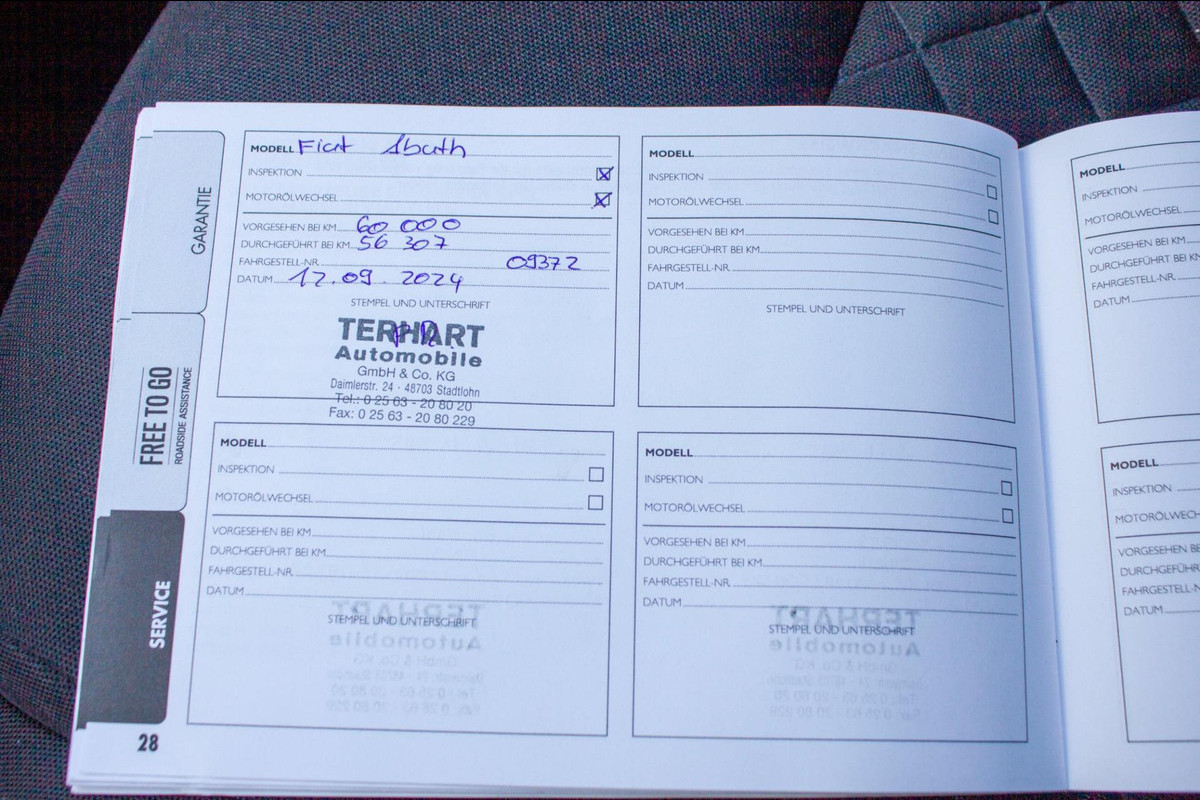 GARANTIE
FREE TO GO
ROADSIDE ASSISTANCE
SERVICE
MODELL Fiat Abath
INSPEKTION
MOTORÖLWECHSEL
VORGESEHEN BEI KM 60 000
DURCHGEFÜHRT BEI KM 56 307
FAHRGESTELL-NR. 09372
DATUM 12.09.2024
STEMPEL UND UNTERSCHRIFT
TERHART
Automobile
GmbH & Co. KG
Daimlerstr. 24 · 48703 Stadtlohn
Tel.: 0 25 63 - 20 80 20
Fax: 0 25 63 - 20 80 229
MODELL
INSPEKTION
MOTORÖLWECHSEL
VORGESEHEN BEI KM
DURCHGEFÜHRT BEI KM
FAHRGESTELL-NR.
DATUM
STEMPEL UND UNTERSCHRIFT
MODELL
INSPEKTION
MOTORÖLWECHSEL
VORGESEHEN BEI KM
DURCHGEFÜHRT BEI KM
FAHRGESTELL-NR.
DATUM
STEMPEL UND UNTERSCHRIFT
MODELL
INSPEKTION
MOTORÖLWECHSEL
VORGESEHEN BEI KM
DURCHGEFÜHRT BEI KM
FAHRGESTELL-NR.
DATUM
STEMPEL UND UNTERSCHRIFT
28
MODELL
INSPEKTION
MOTORÖLWECHSEL
VORGESEHEN BEI KM
DURCHGEFÜHRT BEI KM
FAHRGESTELL-NR.
DATUM
MODELL
INSPEKTION
VORGESEHEN BEI KM
FAHRGESTELL-NR.
DATUM